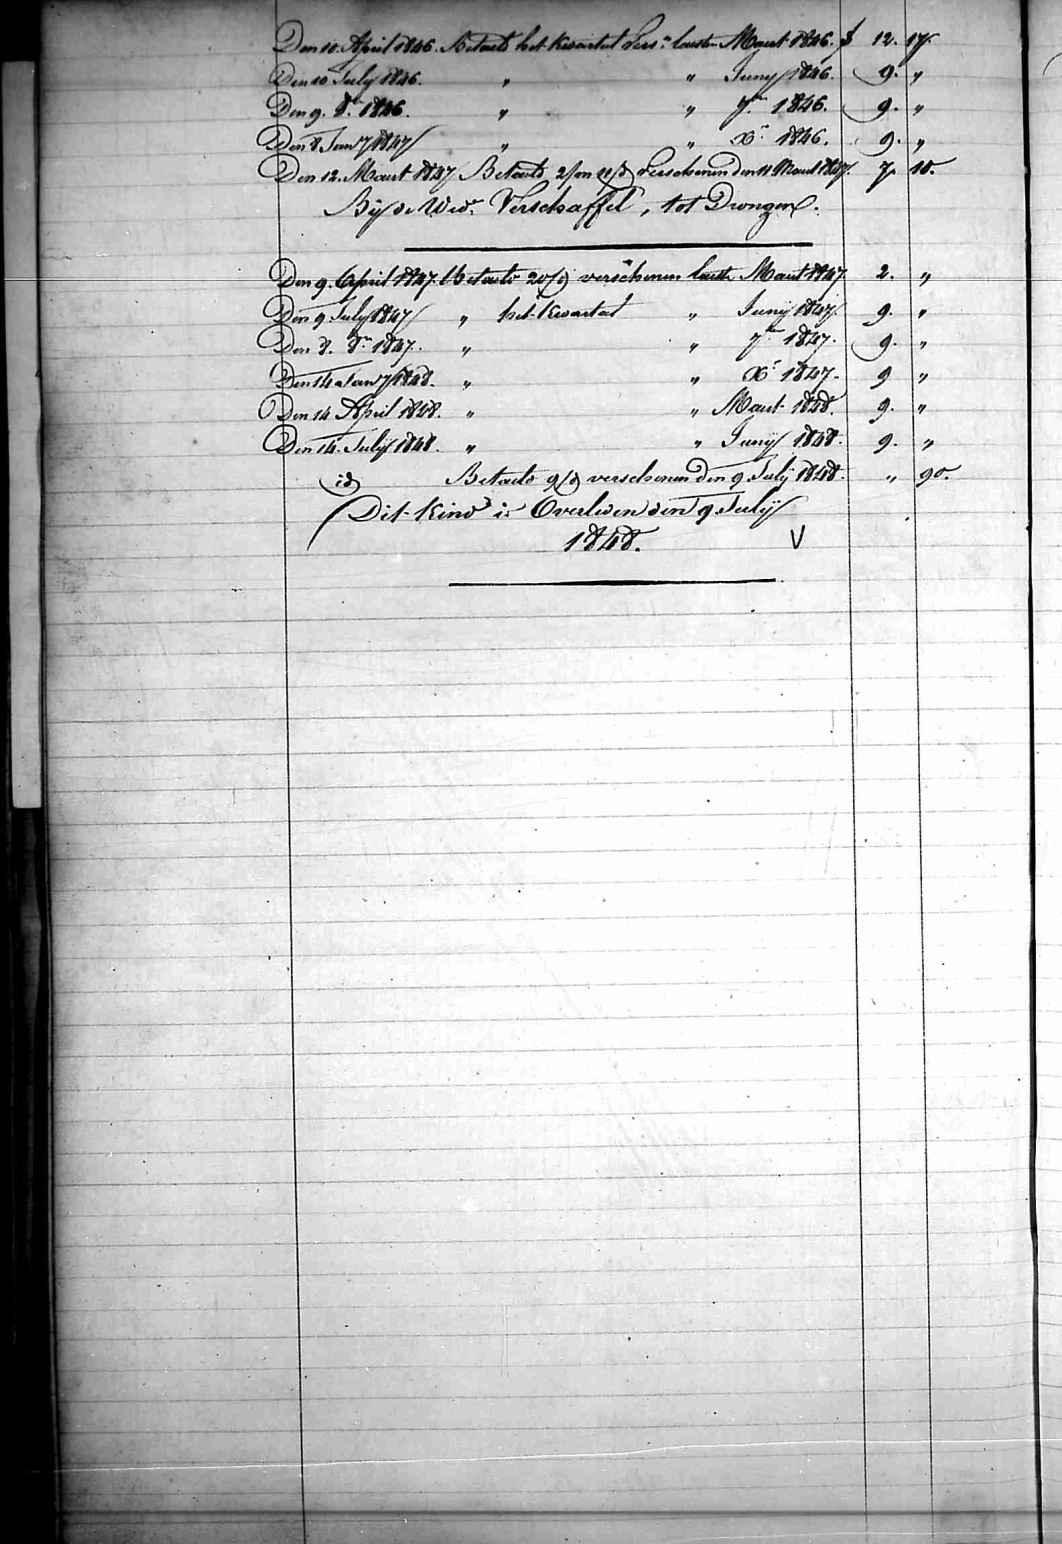 Den 10. April 1846. Betaeld het kwartal Vers.n laeste Maart 1846. f 12. 17.
Den 10 July 1846. " " Juny 1846. 9. "
Den 9. 8.r 1846. " " 7.re 1846. 9. "
Den 8 Janry 1847 " " X.r 1846. 9. "
Den 12. Maart 1847 Betaeld 2/m 11/d Verschenen den 11 Maart 1847. 7. 10.
Bij de Wed.e Verschaffel, tot Drongen.
Den 9. April 1847. Betaeld 20/d verschenen laeste Maart 1847 2. "
Den 9 July 1847 " het kwartal " Junij 1847. 9. "
Den 8. 8.r 1847. " " 7.re 1847. 9. "
Den 14 Janry 1848. " " X.r 1847. 9 "
Den 14 April 1848. " " Maart 1848. 9. "
Den 14. Julij 1848. " " Junij 1848. 9. "
id Betaeld 9/d verschenen den 9 Julij 1848. " 90.
Dit kind is Overleden den 9 Julij
1848. V